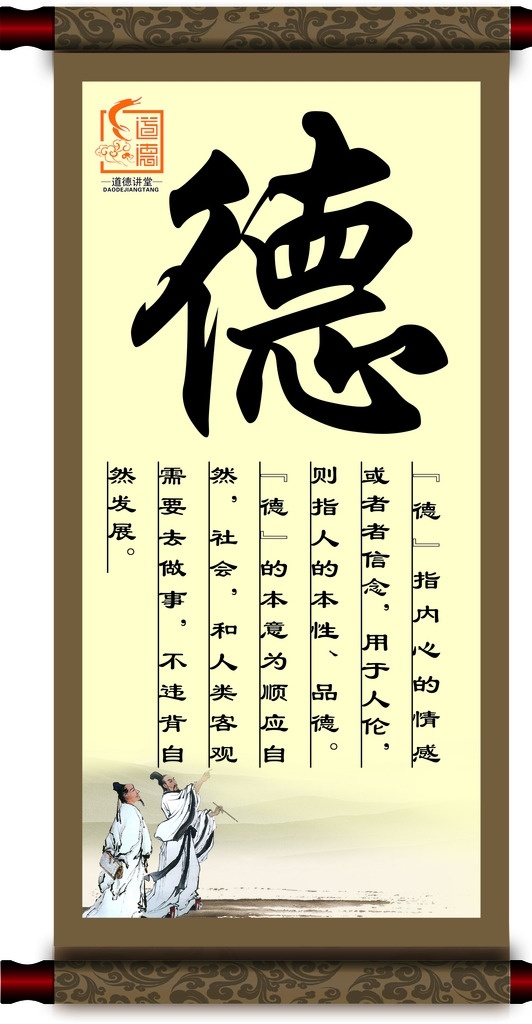 道德
道德讲堂
DAODEJIANGTANG
德
『德』指内心的情感
或者者信念，用于人伦，
则指人的本性、品德。
『德』的本意为顺应自
然，社会，和人类客观
需要去做事，不违背自
然发展。